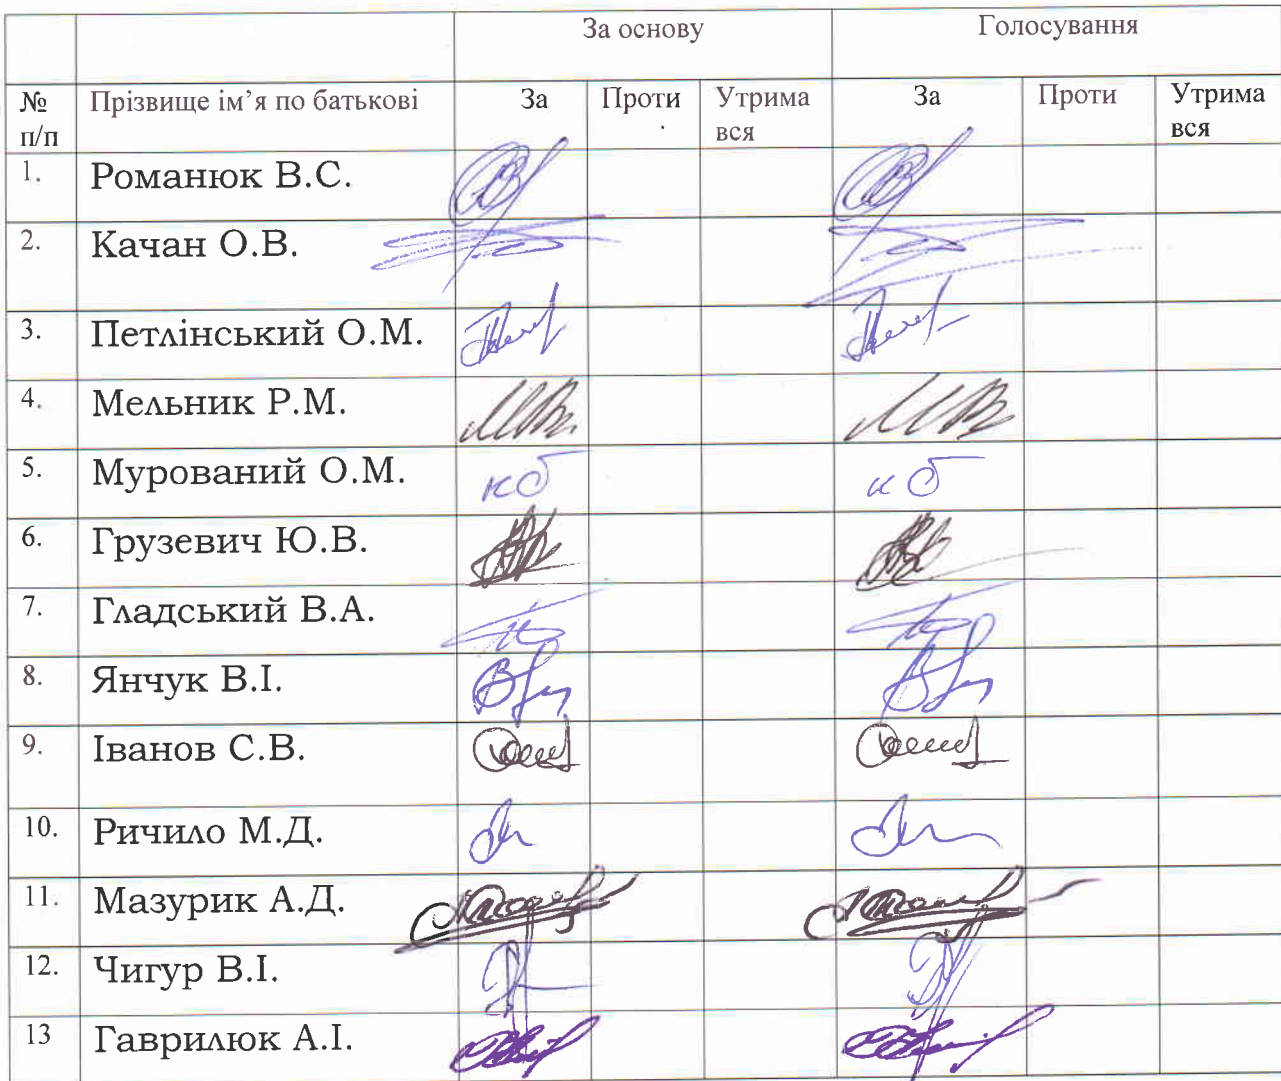 За основу Голосування
№ Прізвище ім’я по батькові За Проти Утрима За Проти Утрима
п/п вся вся
1. Романюк В.С.
2. Качан О.В.
3. Петлінський О.М.
4. Мельник Р.М.
5. Мурований О.М. кб кб
6. Грузевич Ю.В.
7. Гладський В.А.
8. Янчук В.І.
9. Іванов С.В.
10. Ричило М.Д.
11. Мазурик А.Д.
12. Чигур В.І.
13 Гаврилюк А.І.